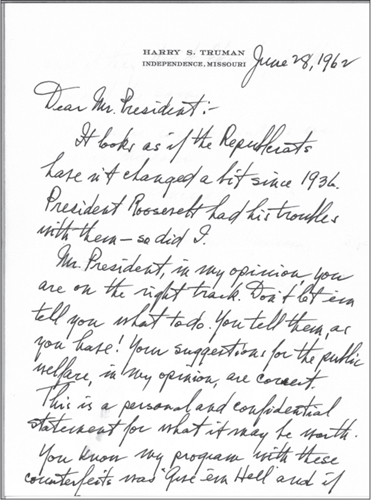 HARRY S. TRUMAN
INDEPENDENCE, MISSOURI
June 28, 1962
Dear Mr. President:-
It looks as if the Republicrats
have n't changed a bit since 1936.
President Roosevelt had his troubles
with them - so did I.
Mr. President, in my opinion, you
are on the right track. Don't let 'em
tell you what to do. You tell them, as
you have! Your suggestions for the public
welfare, in my opinion, are correct.
This is a personal and confidential
statement for what it may be worth.
You know my program with these
counterfeits was "Give 'em Hell" and if